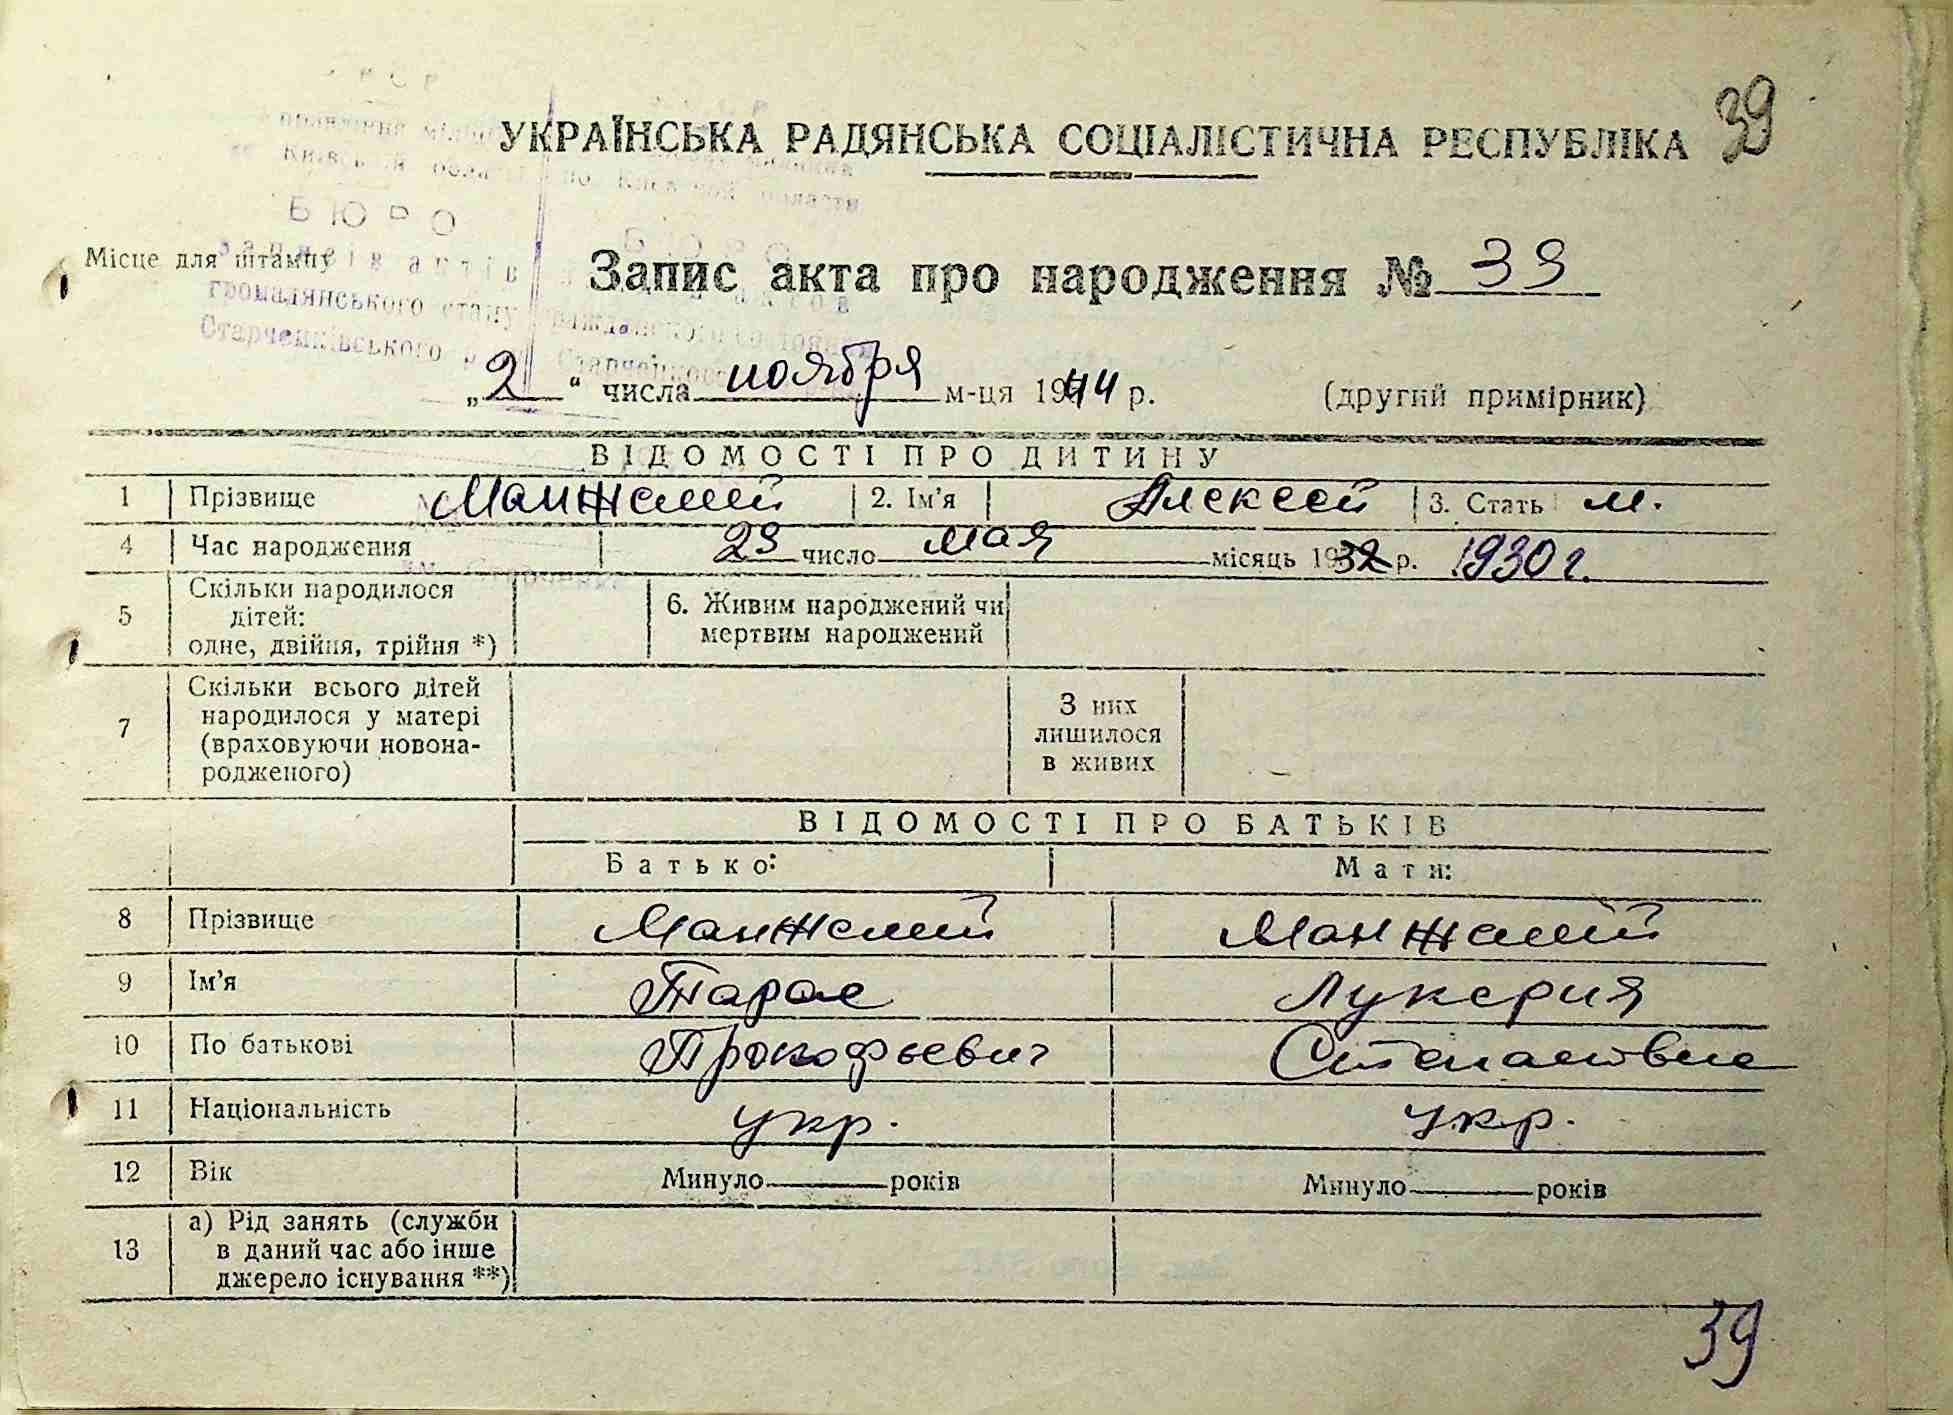 39
УКРАЇНСЬКА РАДЯНСЬКА СОЦІАЛІСТИЧНА РЕСПУБЛІКА
БЮРО
записів актів
громадянського стану
Старченківського
Місце для штампу
Запис акта про народження № 39
„2“ числа ноября м-ця 1944 р. (другий примірник)
ВІДОМОСТІ ПРО ДИТИНУ
1 Прізвище Манжелий 2. Ім'я Алексей 3. Стать м.
4 Час народження 29 число мая місяць 1932 р. 1930 г.
5 Скільки народилося дітей: одне, двійня, трійня *) 6. Живим народжений чи мертвим народжений
7 Скільки всього дітей народилося у матері (враховуючи новона-родженого) З них лишилося в живих
ВІДОМОСТІ ПРО БАТЬКІВ
Батько: Мати:
8 Прізвище Манжелий Манжелий
9 Ім'я Тарас Лукерия
10 По батькові Прокофьевич Степановна
11 Національність укр. укр.
12 Вік Минуло років Минуло років
13 а) Рід занять (служби в даний час або інше джерело існування **)
39